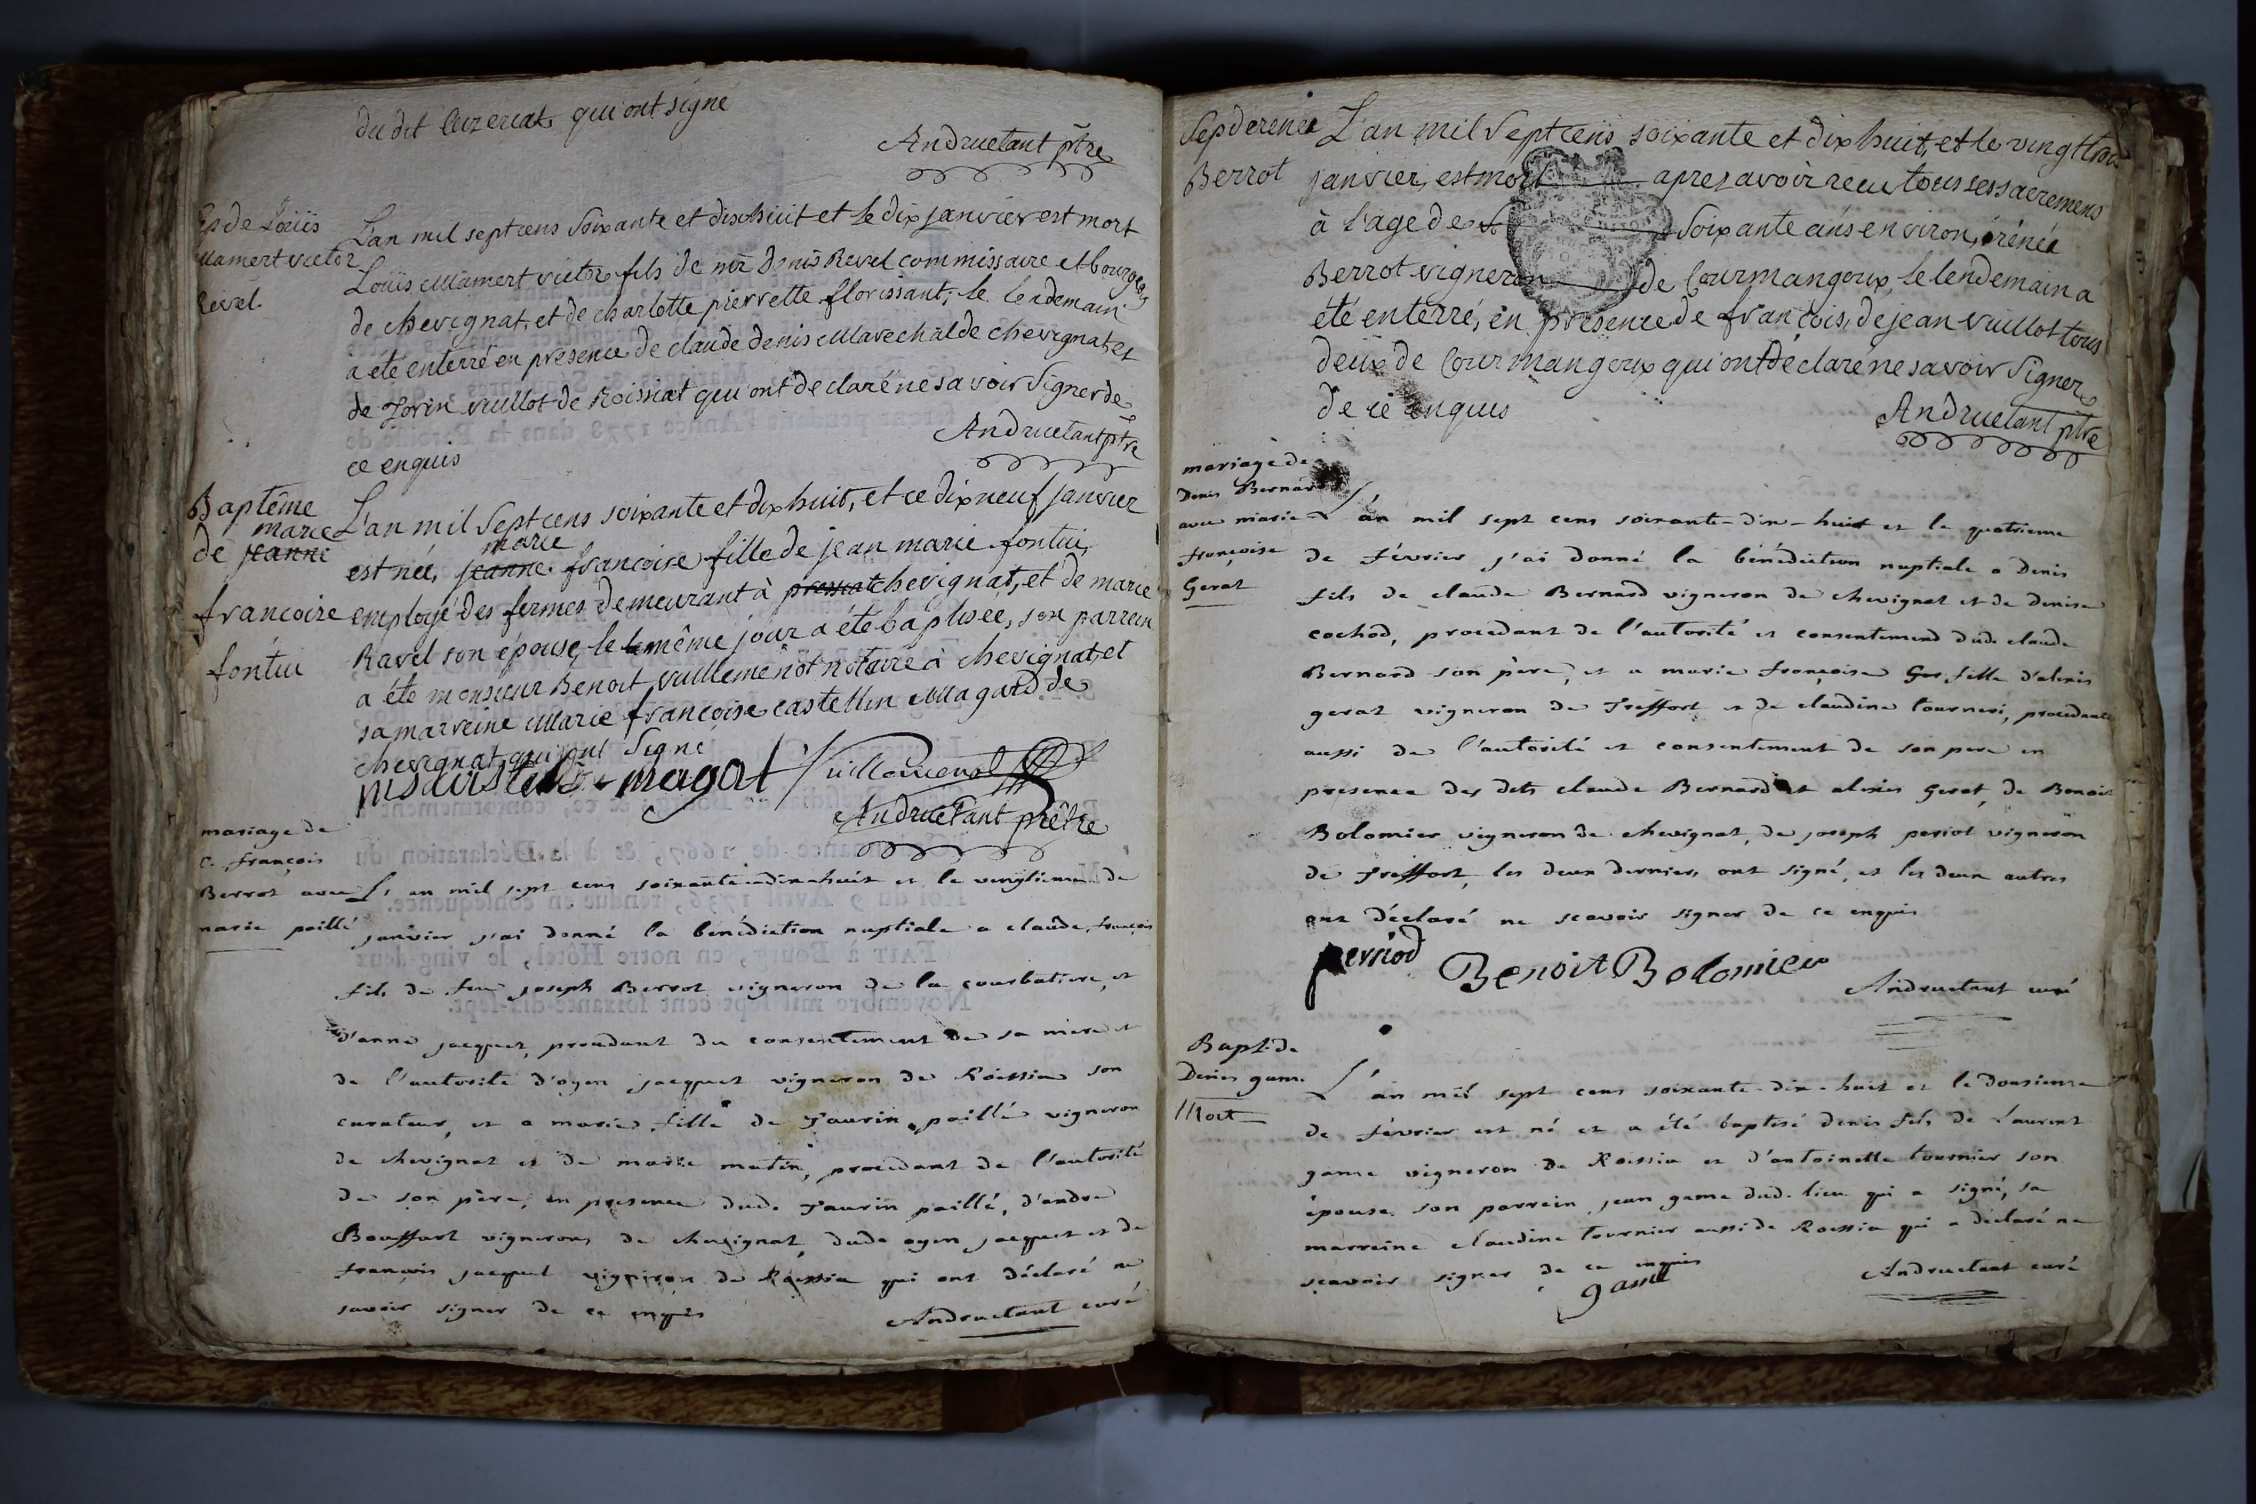 du dit Cuzeriat qui ont signé
Andructant ptre
Sep de Loüis
Mamert victor
Revel.
L'an mil sept cens soixante et dix huit et le dix janvier est mort
Loüis Mamert victor fils de mr Denis Revel commissaire et bourgeois
de chevignat, et de charlotte pierrette florissant, le lendemain
a été enterré en presence de claude denis Marechal de chevignat, et
de Vuillot de Roissiat qui ont declaré ne savoir signer de
ce enquis
Andructant ptre
Baptême
de jeanne marie
francoise
fontui
L'an mil sept cens soixante et dix huit, et ce dix neuf janvier
est née, jeanne marie francoise fille de jean marie fontui,
employé des fermes demeurant à pressiat chevignat, et de marie
Ravel son épouse, le même jour a été baptisée, son parrein
a été monsieur Benoit Vuillemenot notaire à chevignat, et
sa marreine Marie francoise castellin Magard de
chevignat qui ont signé
magat Vuillemenot
Andructant prêtre
mariage de
c. françois
Berrot avec
marie paillé
L'an mil sept cens soixante dix-huit et le vingtieme de
janvier j'ai donné la bénédiction nuptiale a claude françois
fils de feu joseph Berrot vigneron de la courbatiere, et
d'anne jacquet, procedant du consentement de sa mere et
de l'autorité d'oyen jacquet vigneron de Roissia son
curateur, et a marie fille de Taurin paillé vigneron
de chevignat et de marie matin, procedant de l'autorité
de son père, en presence dud. Taurin paillé, d'andre
Bouffart vignerons de chevignat dud. oyen jacquet et de
françois jacquet vigneron de Roissia qui ont déclaré ne
savoir signer de ce enquis
Andructant curé
Sep d'erenée
Berrot
L'an mil sept cens soixante et dix huit, et le vingt trois
janvier, est mort apres avoir recu tous ses sacremens
à l'age de soixante ans environ, érénée
Berrot vigneron de Courmangoux, le lendemain a
été enterré, en presence de françois, de jean vuillot tous
deux de Courmangoux qui ont déclaré ne savoir signer
de ce enquis
Andructant ptre
mariage de
Denis Bernard
avec marie
françoise
Gerat
L'an mil sept cens soixante-dix-huit et le quatrieme
de février j'ai donné la bénédiction nuptiale a Denis
fils de claude Bernard vigneron de chevignat et de denise
cochod, procedant de l'autorité et consentement dud. claude
Bernard son père, et a marie françoise Ger fille d'alexis
gerat vigneron de Treffort et de claudine tourneri, procedante
aussi de l'autorité et consentement de son pere en
presence des dits claude Bernard et alexis Gerat, de Benoit
Bolomier vigneron de chevignat, de joseph periot vigneron
de Treffort, les deux derniers ont signé, et les deux autres
ont déclaré ne scavoir signer de ce enquis
perriod Benoit Bolomier
Andructant curé
Bapt. de
Denis game
Mort
L'an mil sept cens soixante-dix-huit et le douzieme
de février est né et a été baptisé denis fils de Laurent
game vigneron de Roissia et d'antoinette tournier son
épouse. son parrein jean game dud. lieu qui a signé, sa
marreine claudine tournier aussi de Roissia qui a déclaré ne
scavoir signer de ce enquis
game
Andructant curé